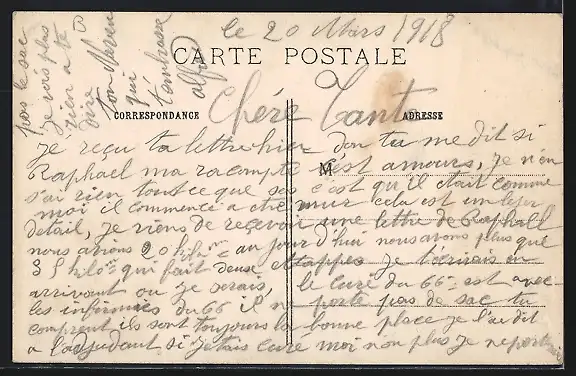 le 20 Mars 1918
CARTE POSTALE
Chére Tante
CORRESPONDANCE
ADRESSE
M
Je reçu ta lettre hier don tu me dit si
Raphael ma raconpte s'est amours, Je n'en
s'ai rien tout ce que s'es c'est qu'il était comme
moi il commence a etre mur cela est un leger
detail, Je viens de recevoir une lettre de Raphall
nous avions 20 kilo au jour d'hui nous avons plus que
35 kilo qui fait deuse ettappes Je t'ecrirais en
arrivant ou Je serais, le curé du 66 est avec
les infirmiés du 66 il ne porte pas de sac tu
comprent ils sont toujours la bonne place Je l'ai dit
a l'adjudant si J'etais curé moi non plus Je ne porterais
pas le sac
Je vois plus
rien a te
dire
ton Neveu
qui
t'embrasse
Alfred